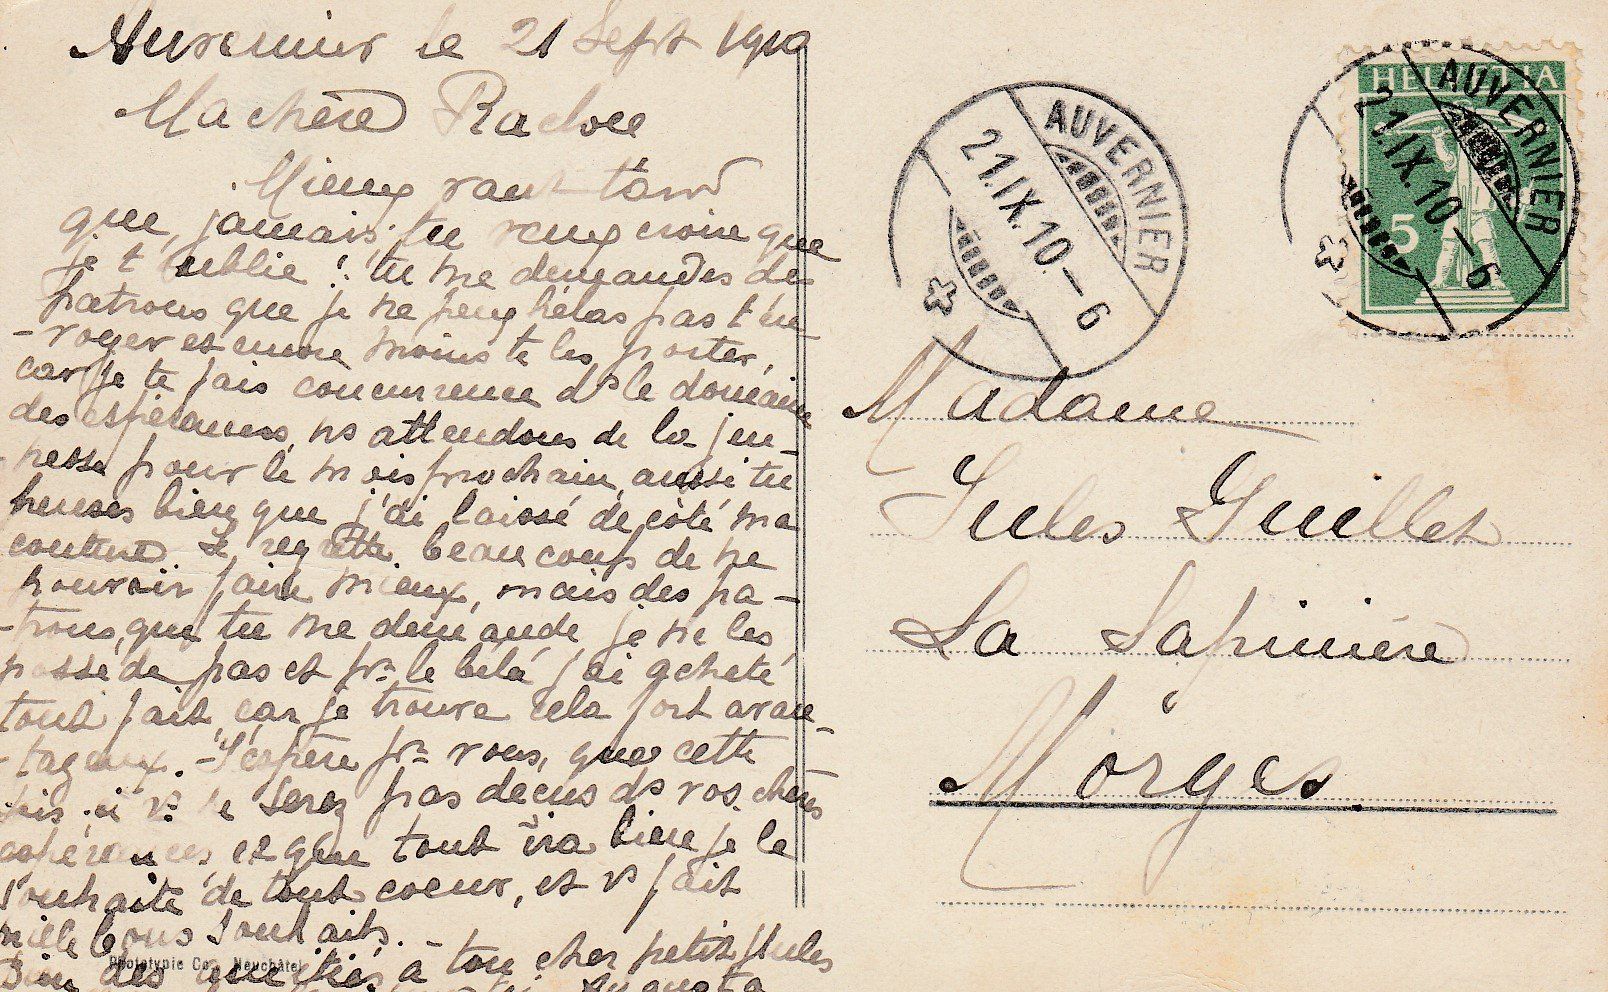 Auvernier le 21 Sept 1910
Ma chère Rachel
Mieux vaut tard
que jamais, tu veux croire que
je t'oublie! tu me demandes des
patrons que je ne peux hélas pas t'en-
-voyer et encore moins te les porter,
car je te fais concurrence ds le domaine
des espérances, ns attendons de la jeu-
-nesse pour le mois prochain, aussi tu
penses bien que j'ai laissé de côté ma
couture & regrette beaucoup de ne
pouvoir faire mieux, mais des pa-
-trons, que tu me demande, je ne les
possède pas et pr le bébé j'ai acheté
tout fait, car je trouve cela fort avan-
-tageux. J'espère pr vous, que cette
fois ci vs ne serez pas déçus ds vos chères
espérances, et que tout ira bien je le
souhaite de tout coeur, et vs fait
mille bons souhaits. -
Bien des amitiés à ton cher petit Jules
Augusta
Phototypie Co. Neuchâtel
AUVERNIER
21.IX.10.-6
HELVETIA
5
AUVERNIER
21.IX.10-6
Madame
Jules Guillet
La Sapinière
Morges.